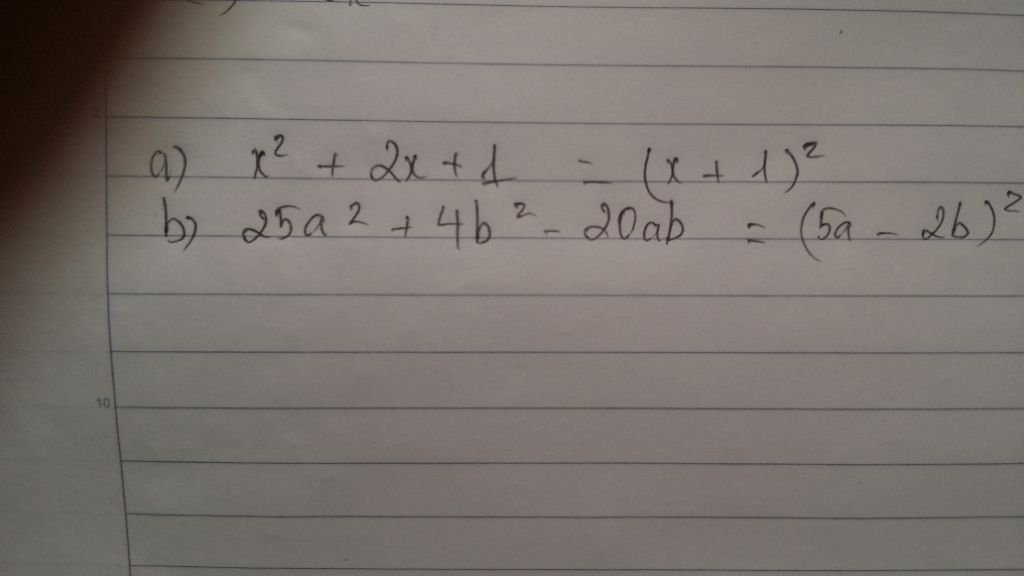 a) x² + 2x + 1 = (x + 1)²
b) 25a² + 4b² - 20ab = (5a - 2b)²
10